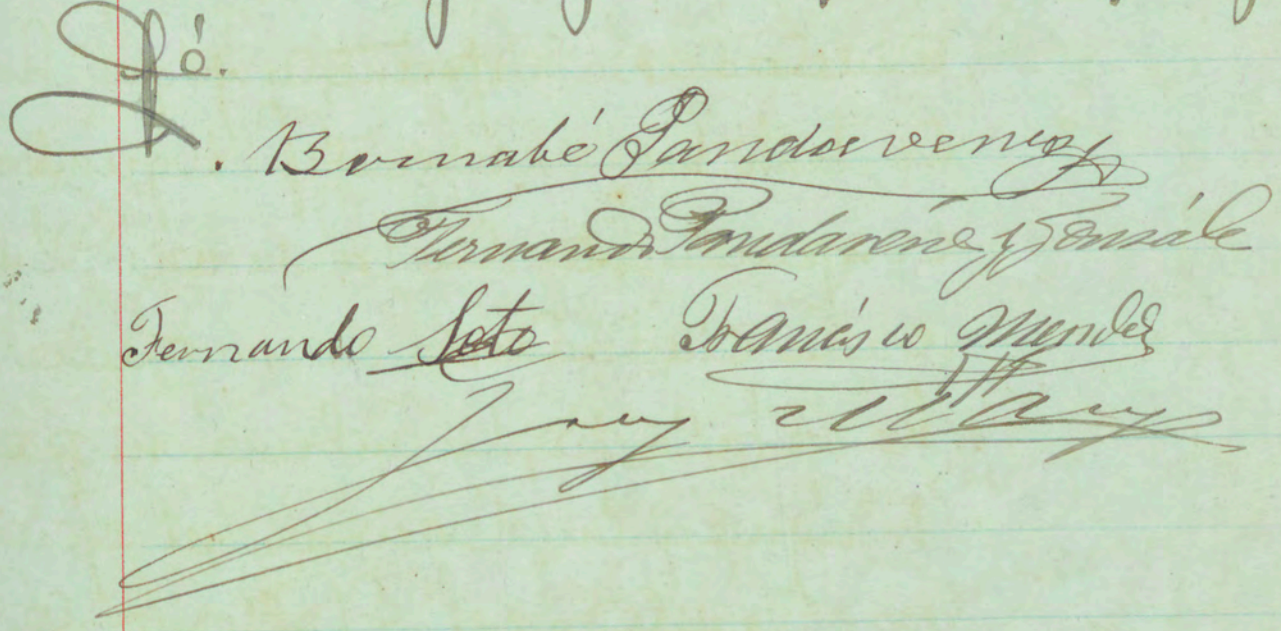 fé.
Bernabé Pandavenes
Fernando Pandavene y Gonzále
Fernando Soto Francisco Mendez